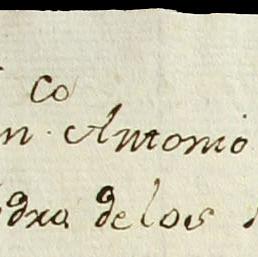 co
n Antonio
dra de los